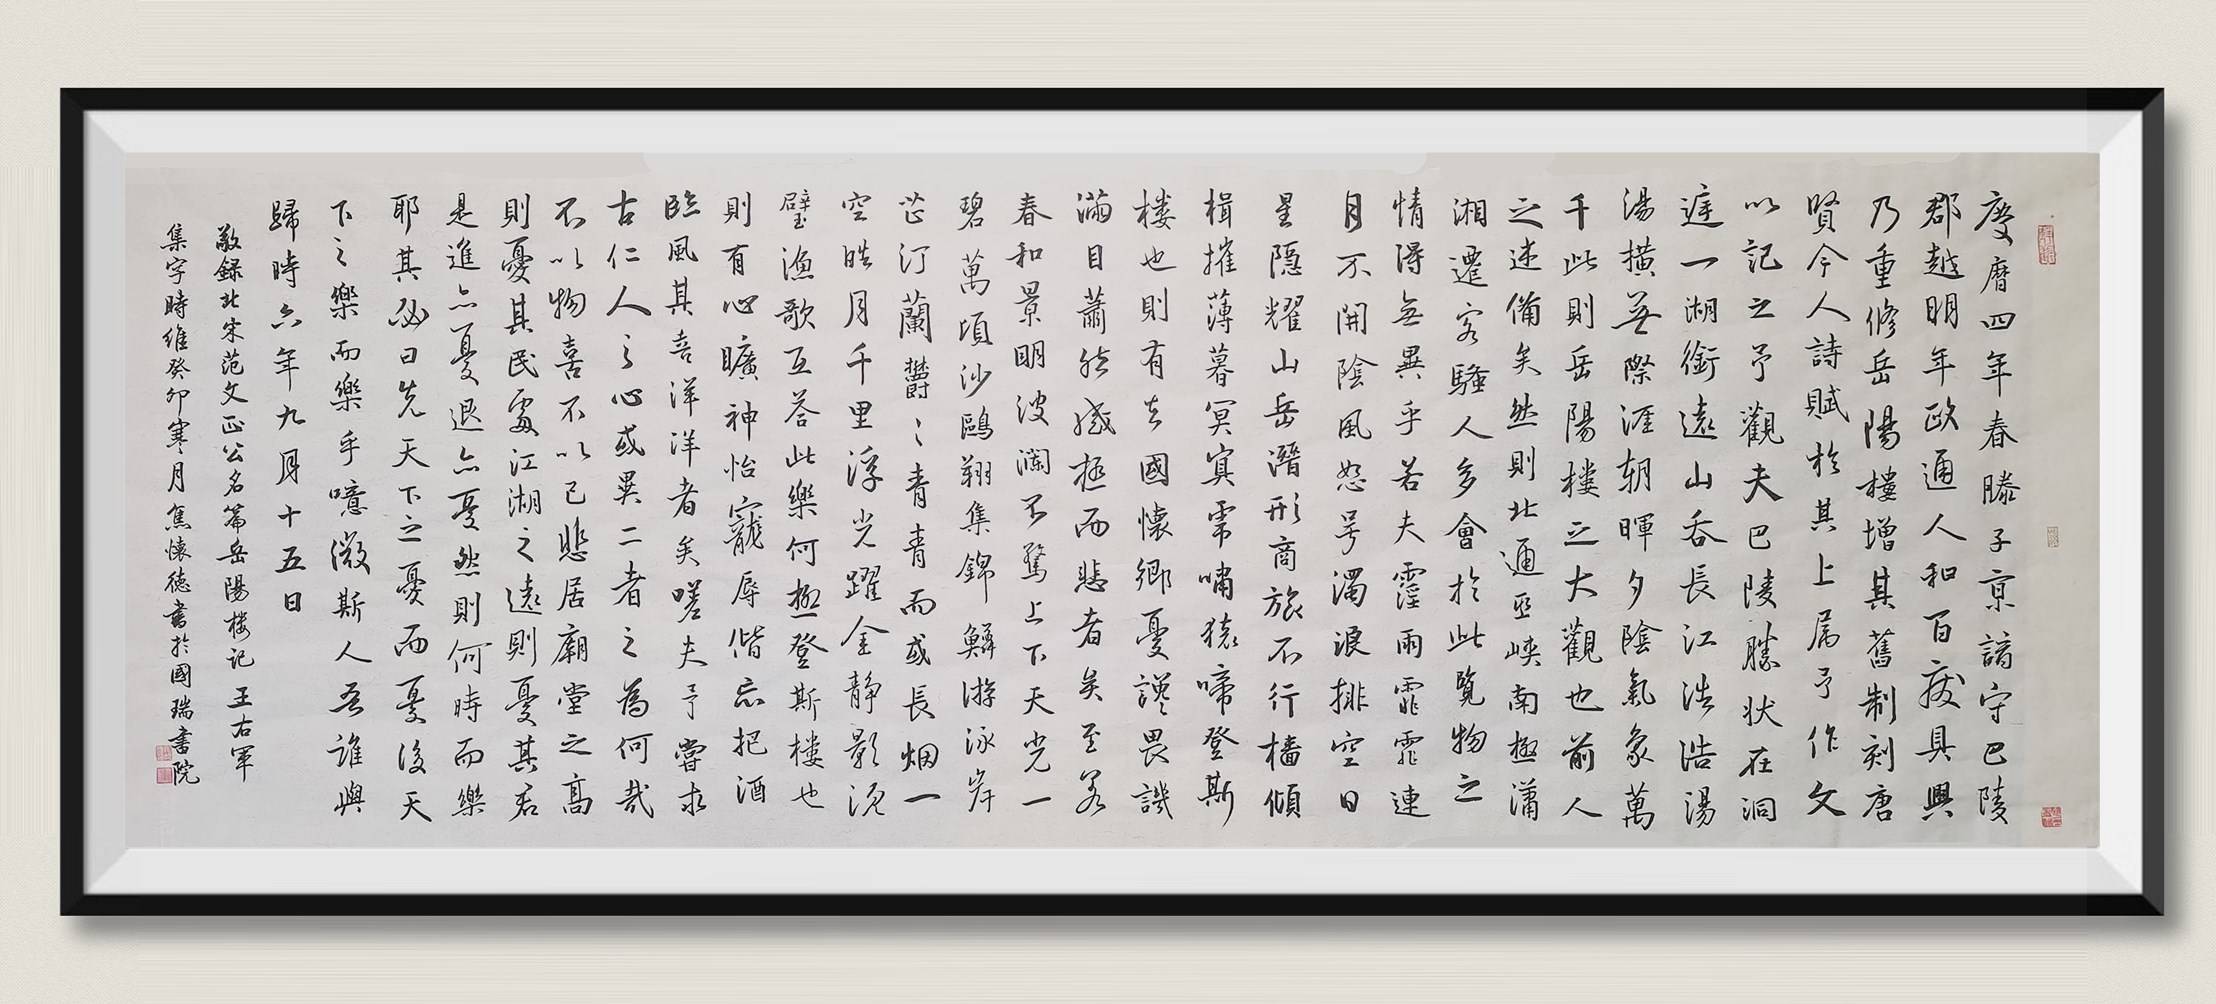 慶曆四年春滕子京謫守巴陵
郡越明年政通人和百廢具興
乃重修岳陽樓增其舊制刻唐
賢今人詩賦於其上屬予作文
以記之予觀夫巴陵勝狀在洞
庭一湖銜遠山吞長江浩浩湯
湯橫無際涯朝暉夕陰氣象萬
千此則岳陽楼之大觀也前人
之述備矣然則北通巫峽南極瀟
湘遷客騷人多會於此覽物之
情得無異乎若夫霪雨霏霏連
月不開陰風怒号濁浪排空日
星隱耀山岳潛形商旅不行檣傾
楫摧薄暮冥冥虎嘯猿啼登斯
楼也則有去國懷鄉憂讒畏譏
滿目蕭然感極而悲者矣至若
春和景明波瀾不驚上下天光一
碧萬頃沙鷗翔集錦鱗游泳岸
芷汀蘭欝〻青青而或長烟一
空皓月千里浮光躍金靜影沉
璧漁歌互答此樂何極登斯楼也
則有心曠神怡寵辱偕忘把酒
臨風其喜洋洋者矣嗟夫予嘗求
古仁人之心或異二者之為何哉
不以物喜不以己悲居廟堂之高
則憂其民處江湖之遠則憂其君
是進亦憂退亦憂然則何時而樂
耶其必曰先天下之憂而憂後天
下之樂而樂乎噫微斯人吾誰與
歸時六年九月十五日
敬録北宋范文正公名篇岳陽楼記王右軍
集字時維癸卯寒月焦懷德書於國瑞書院